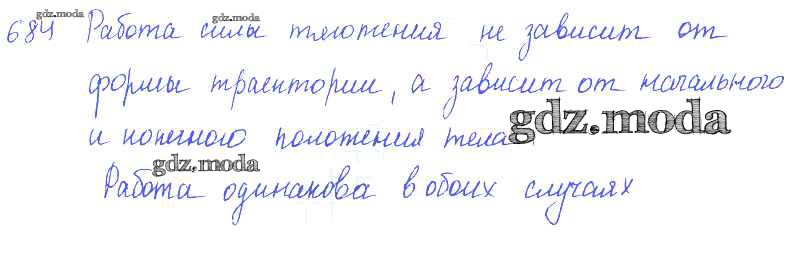 gdz.moda
gdz.moda
684 Работа силы тяготения не зависит от
формы траектории, а зависит от начального
и конечного положения тела.
gdz.moda
gdz.moda
Работа одинакова в обоих случаях